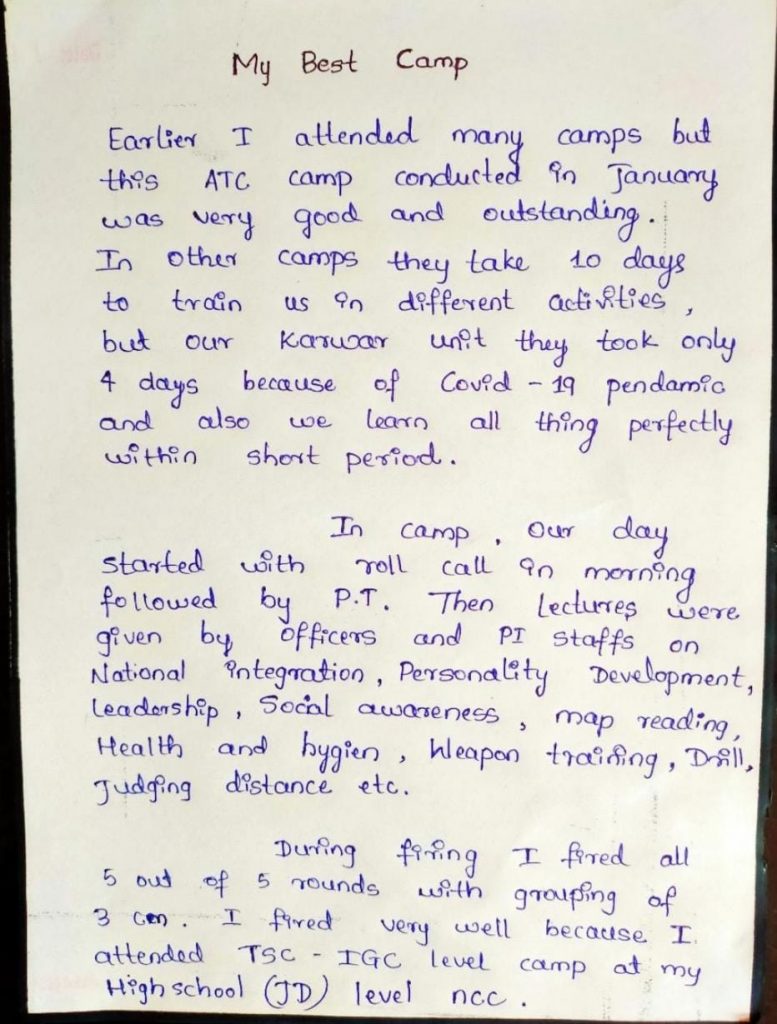 My Best Camp
Earlier I attended many camps but
this ATC camp conducted in January
was very good and outstanding.
In other camps they take 10 days
to train us in different activities,
but our Karwar unit they took only
4 days because of Covid-19 pendamic
and also we learn all thing perfectly
within short period.
In camp, our day
started with roll call in morning
followed by P.T. Then Lectures were
given by officers and PI staffs on
National integration, Personality Development,
Leadership, Social awareness, map reading,
Health and hygien, Weapon training, Drill,
Judging distance etc.
During firing I fired all
5 out of 5 rounds with grouping of
3 cm. I fired very well because I
attended TSC - IGC level camp at my
High school (JD) level ncc.